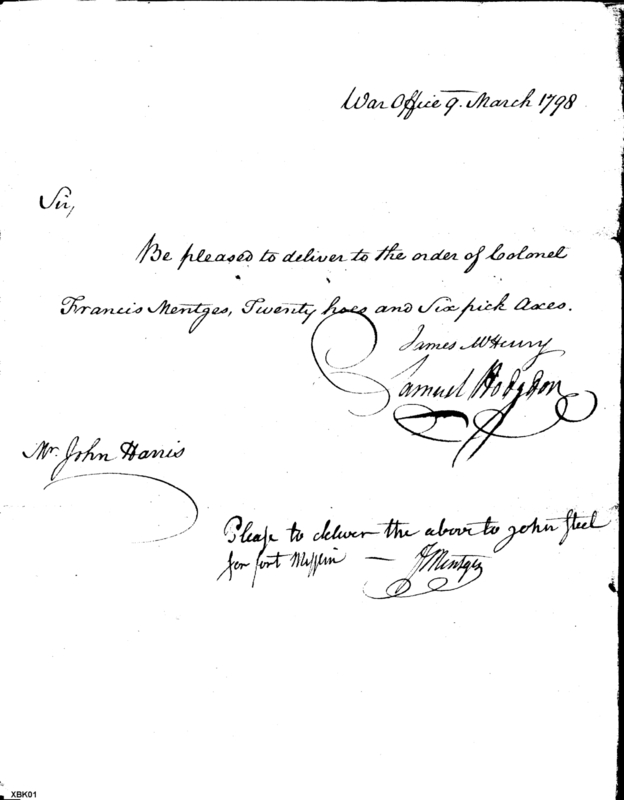 War Office 9. March 1798
Sir,
Be pleased to deliver to the order of Colonel
Francis Mentges, Twenty hoes and Six pick Axes.
James McHenry
Samuel Hodgdon
Mr. John Harris
Please to deliver the above to John Steel
for fort Mifflin — F Mentges
XBK01